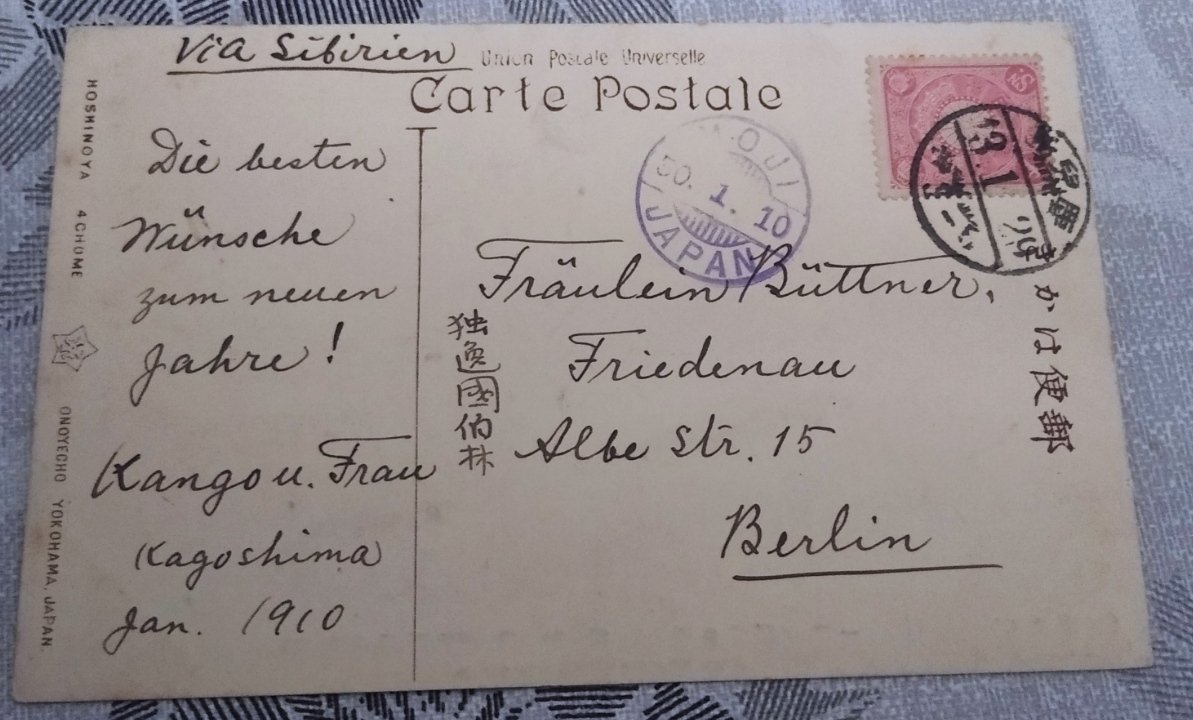 Via Sibirien
Union Postale Universelle
Carte Postale
Die besten
Wünsche
zum neuen
Jahre!
Kango u. Frau
Kagoshima
Jan. 1910
Fräulein Büttner,
Friedenau
Albe Str. 15
Berlin
独逸國伯林
郵便はかき
OJI
30. 1. 10
JAPAN
13.1
HOSHINOYA 4CHOME ONOYECHO YOKOHAMA, JAPAN.